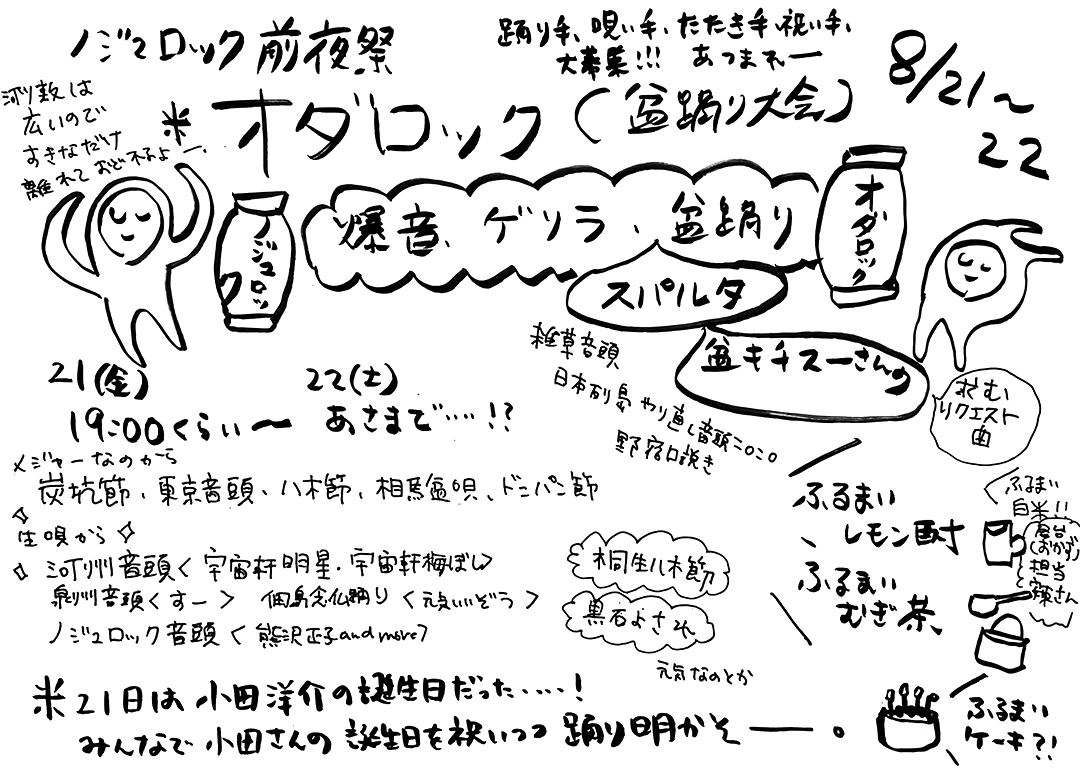 ノジュロック前夜祭
踊り手、唄い手、たたき手、祝い手、
大募集!!! あつまれー
8/21〜
22
河川敷は
広いので
すきなだけ
離れておどれるよー.
※オダロック(盆踊り大会)
ノジュロック
爆音、ゲリラ、盆踊り
オダロック
スパルタ
盆キチスーさんの
雑草音頭
日本列島やり直し音頭二〇二〇
野宿口説き
おどむ
リクエスト
曲
21(金)
22(土)
19:00くらい〜 あさまで....!?
メジャーなのから
炭坑節、東京音頭、八木節、相馬盆唄、ドンパン節
生唄から
河内音頭く宇宙軒明星・宇宙軒梅ぼし〉
泉州音頭くすー〉 佃島念仏踊り〈元いいぞう〉
ノジュロック音頭〈熊沢正子and more〉
桐生八木節
黒石よされ
元気なのとか
ふるまい
レモン酎
ふるまい
むぎ茶、
ふるまい
白米!!
屋台
(おかず)
担当
さん
ふるまい
ケーキ?!
※21日は小田洋介の誕生日だった.....!
みんなで小田さんの誕生日を祝いつつ踊り明かそ——。